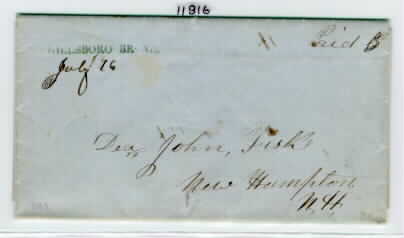 11916
HILLSBORO BR. N.H.
July 26
Paid 3
Dea. John, Fisk
New Hampton
N.H.